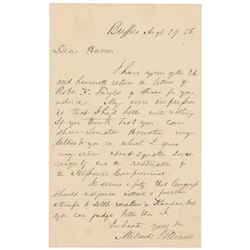 Buffalo Augt 29. 56.
Dear Haven
I have yours of the 26
and herewith return the letter of
Robt. H. Taylor of Texas for your
advice. My own impression
is that I had better write
nothing. If you think best you can
show Senator Houston my
letter to you in which I gave
my views about Squatter Sovereignty
and the restoration of
the Missouri Compromise.
It seems a pity that Congress
should adjourn without a further
attempt to settle matters in Kansas, but
you can judge better than I.
In haste yours &c
Millard Fillmore